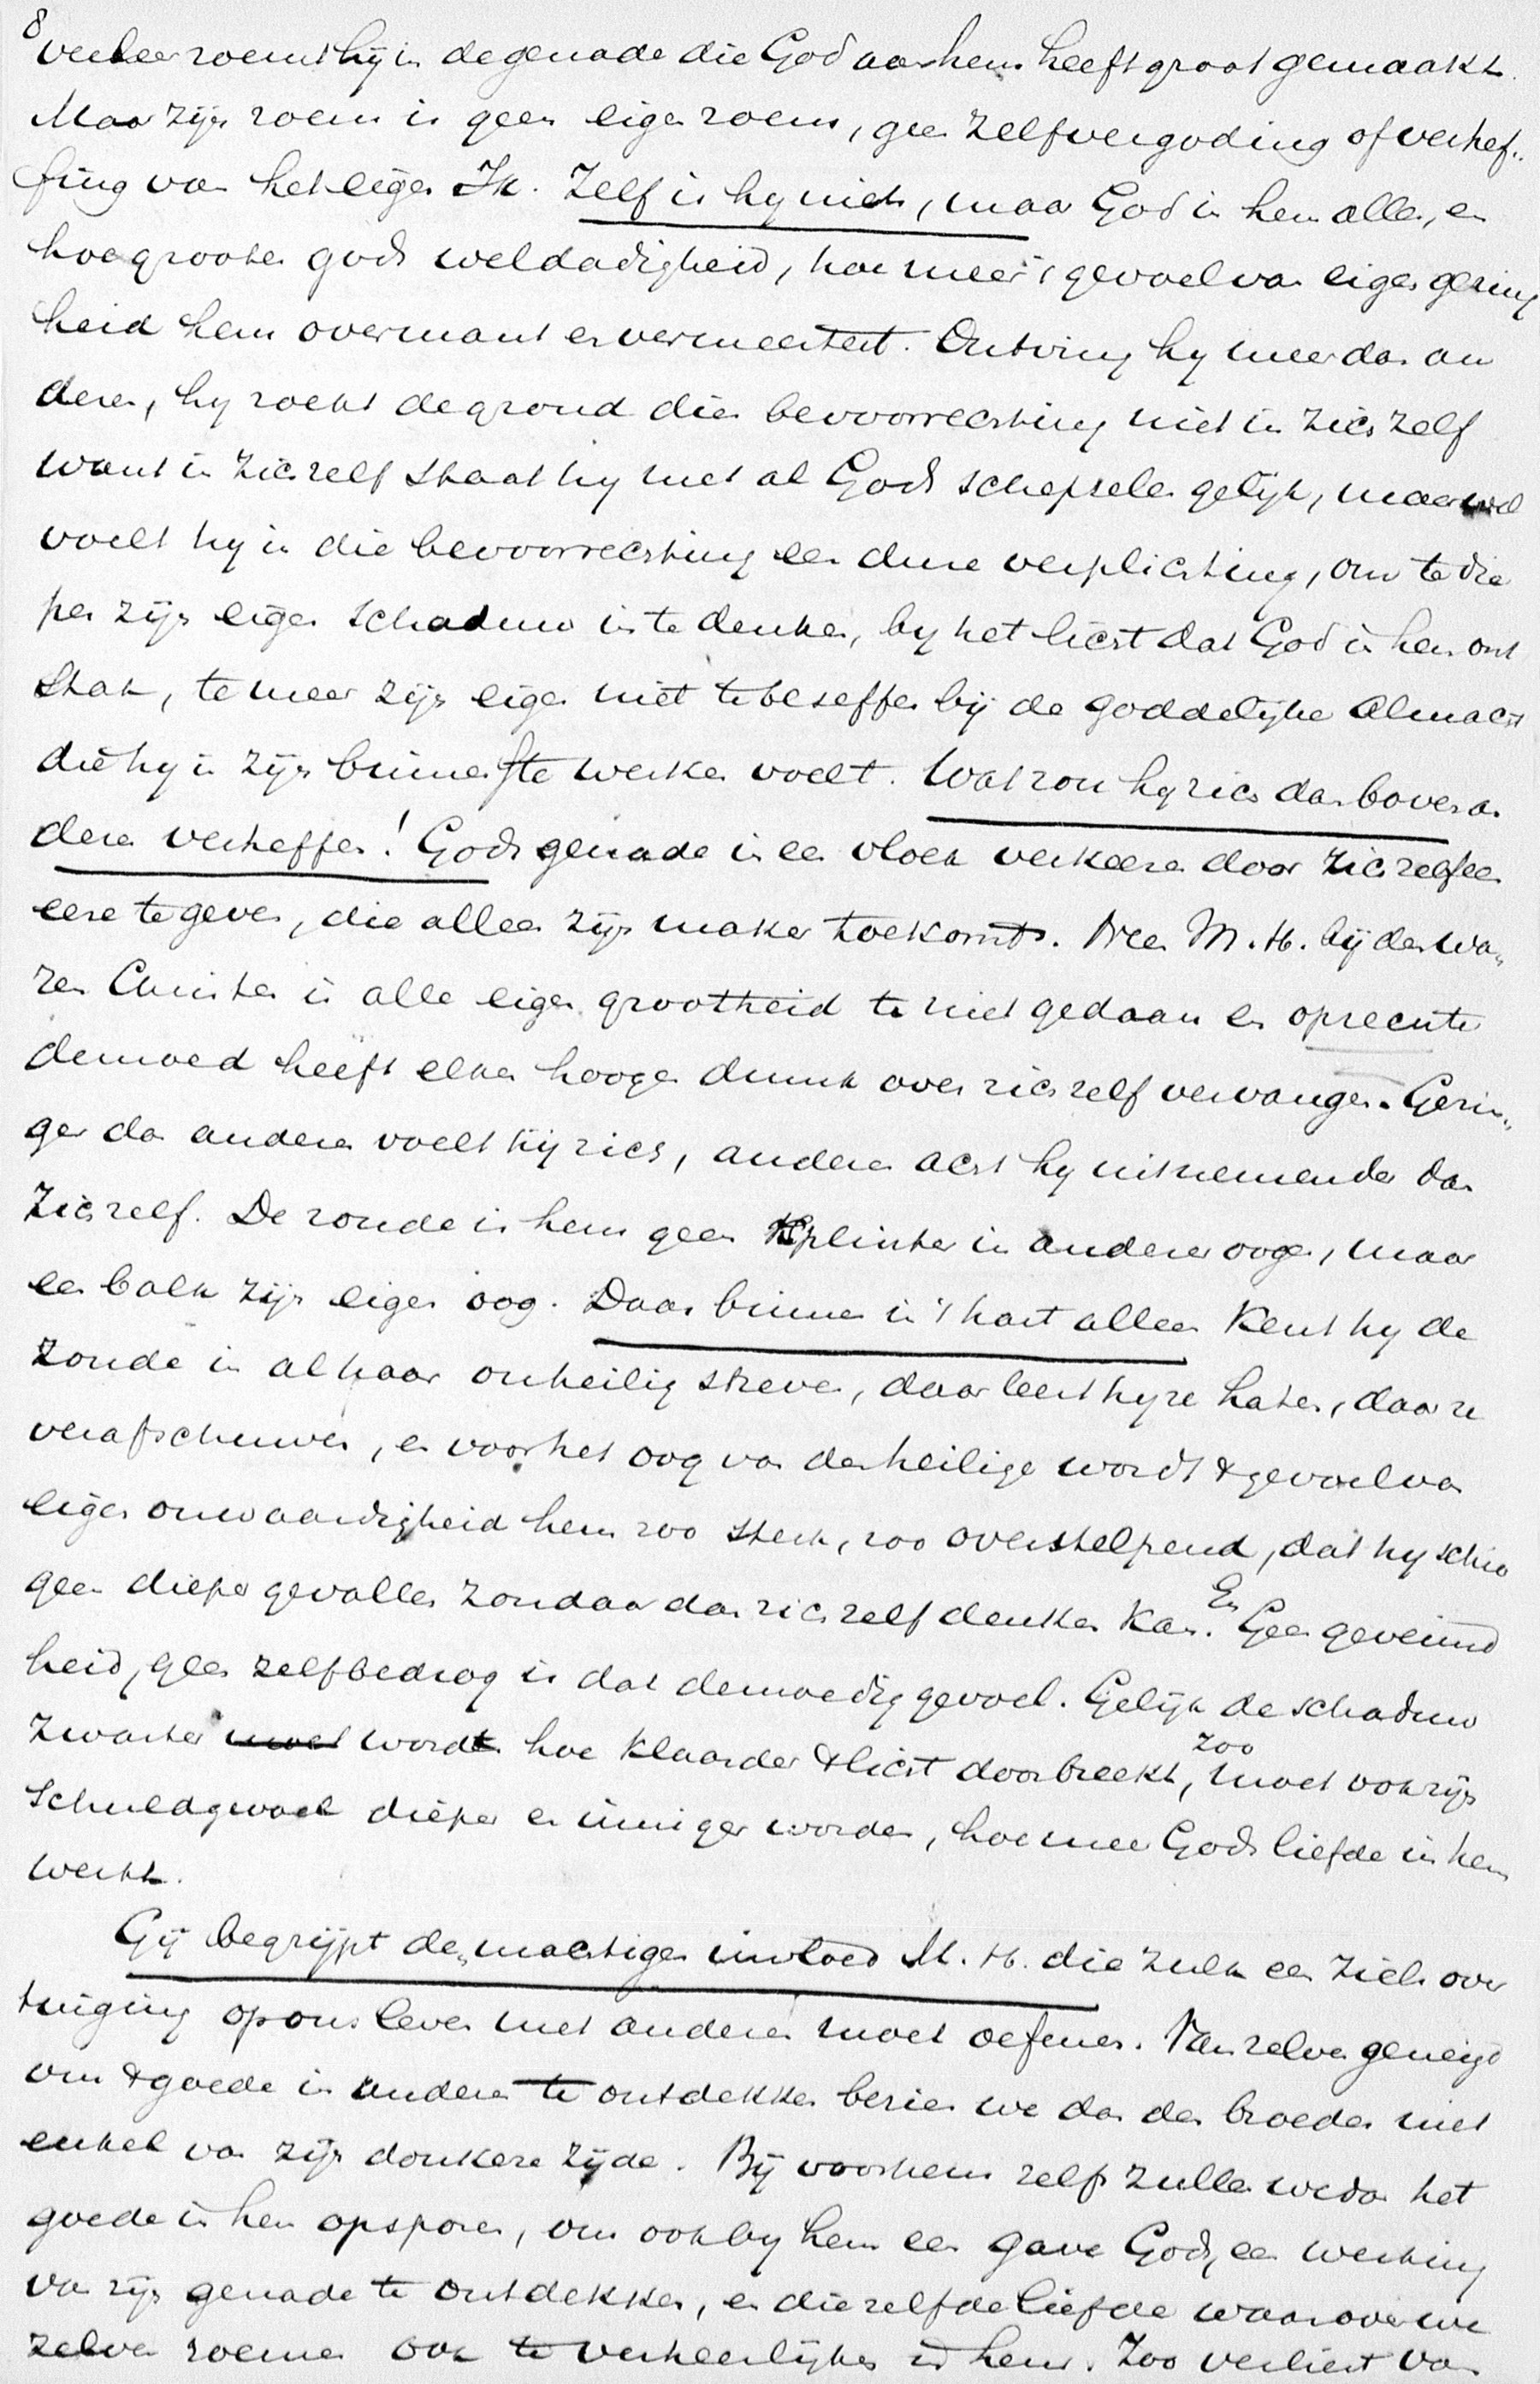 8
veeleer roemt hij in de genade die God aan hem heeft groot gemaakt.
Maar zijn roem is geen eigen roem, geen zelfvergoding of verhef-
fing van het eigen Ik. Zelf is hy niets, maar God in hem alles, en
hoe grooter gods weldadigheid, hoe meer 't gevoel van eigen gering
heid hem overmant en vermeestert. Ontving hy meer dan an
deren, hy zoekt de grond dier bevoorrechting niet in zich zelf
want in zich zelf staat hy met al Gods schepselen gelijk, maar wel
voelt hy in die bevoorrechting een dure verplichting, om te die
per zijn eigen schaduw in te denken, by het licht dat God in hem ont
stak, te meer zijn eigen niet te beseffen bij de goddelijke almacht
die hy in zijn binnenste werken voelt. Wat zou hy zich dan boven an
deren verheffen! Gods genade in een vloek verkeeren door zich zelf een
eere te geven, die alleen zijn maker toekomt. Neen M. H. bij den wa-
ren Christen is alle eigen grootheid te niet gedaan en oprechte
demoed heeft elken hoogen dunk over zich zelf vervangen. Gerin-
ger dan anderen voelt hij zich, anderen acht hy uitnemender dan
zich zelf. De zonde is hem geen splinter in anderer oogen, maar
een balk zijn eigen oog. Daar binnen in 't hart alleen kent hy de
zonde in al haar onheilig streven, daar leert hy ze haten, daar ze
verafschuwen, en voor het oog van den heilige wordt 't gevoel van
eigen onwaardigheid hem zoo sterk, zoo overstelpend, dat hy schier
geen dieper gevallen zondaar dan zich zelf denken kan. En Geen geveinsd
heid, geen zelfbedrog is dat demoedig gevoel. Gelijk de schaduw
zwarter moet wordt hoe klaarder 't licht doorbreekt, zoo moet ook zijn
schuldgevoel dieper en inniger worden, hoe meer Gods liefde in hem
werkt.
Gij begrijpt den machtigen invloed M. H. die zulk een ziels over
tuiging op ons leven met anderen moet oefenen. Van zelve geneigd
om 't goede in anderen te ontdekken bezien we dan den broeder niet
enkel van zijn donkere zijde. Bij voorkeur zelfs zullen we dan het
goede in hen opsporen, om ook by hem een gave Gods, een werking
van zijn genade te ontdekken, en diezelfde liefde waarover we
zelven roemen ook te verheerlijken in hem. Zoo verliest van